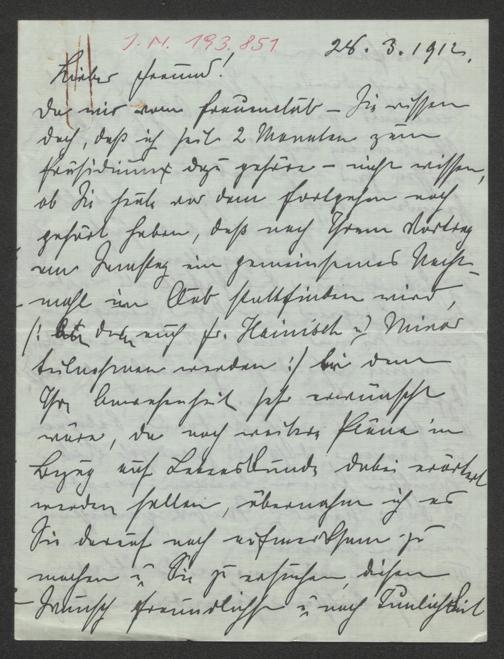 J.N. 193.851
28. 3. 1912.
Lieber Freund!
Da wir vom Frauenklub – Sie wissen
doch, daß ich seit 2 Monaten zum
Präsidium dazu gehöre – nicht wissen,
ob Sie heute vor dem Fortgehen noch
gehört haben, daß nach Ihrem Vortrag
am Samstag ein gemeinsames Nacht-
mahl im Club stattfinden wird,
(: an dem auch Fr. Hainisch u Minor
teilnehmen werden :) bei dem
Ihre Anwesenheit sehr erwünscht
wäre, da noch weitere Pläne in
Bezug auf Lebenskunde dabei erörtert
werden sollen, übernahm ich es
Sie darauf noch aufmerksam zu
machen u Sie zu ersuchen, diesen
Wunsch freundlichst u nach Tunlichkeit